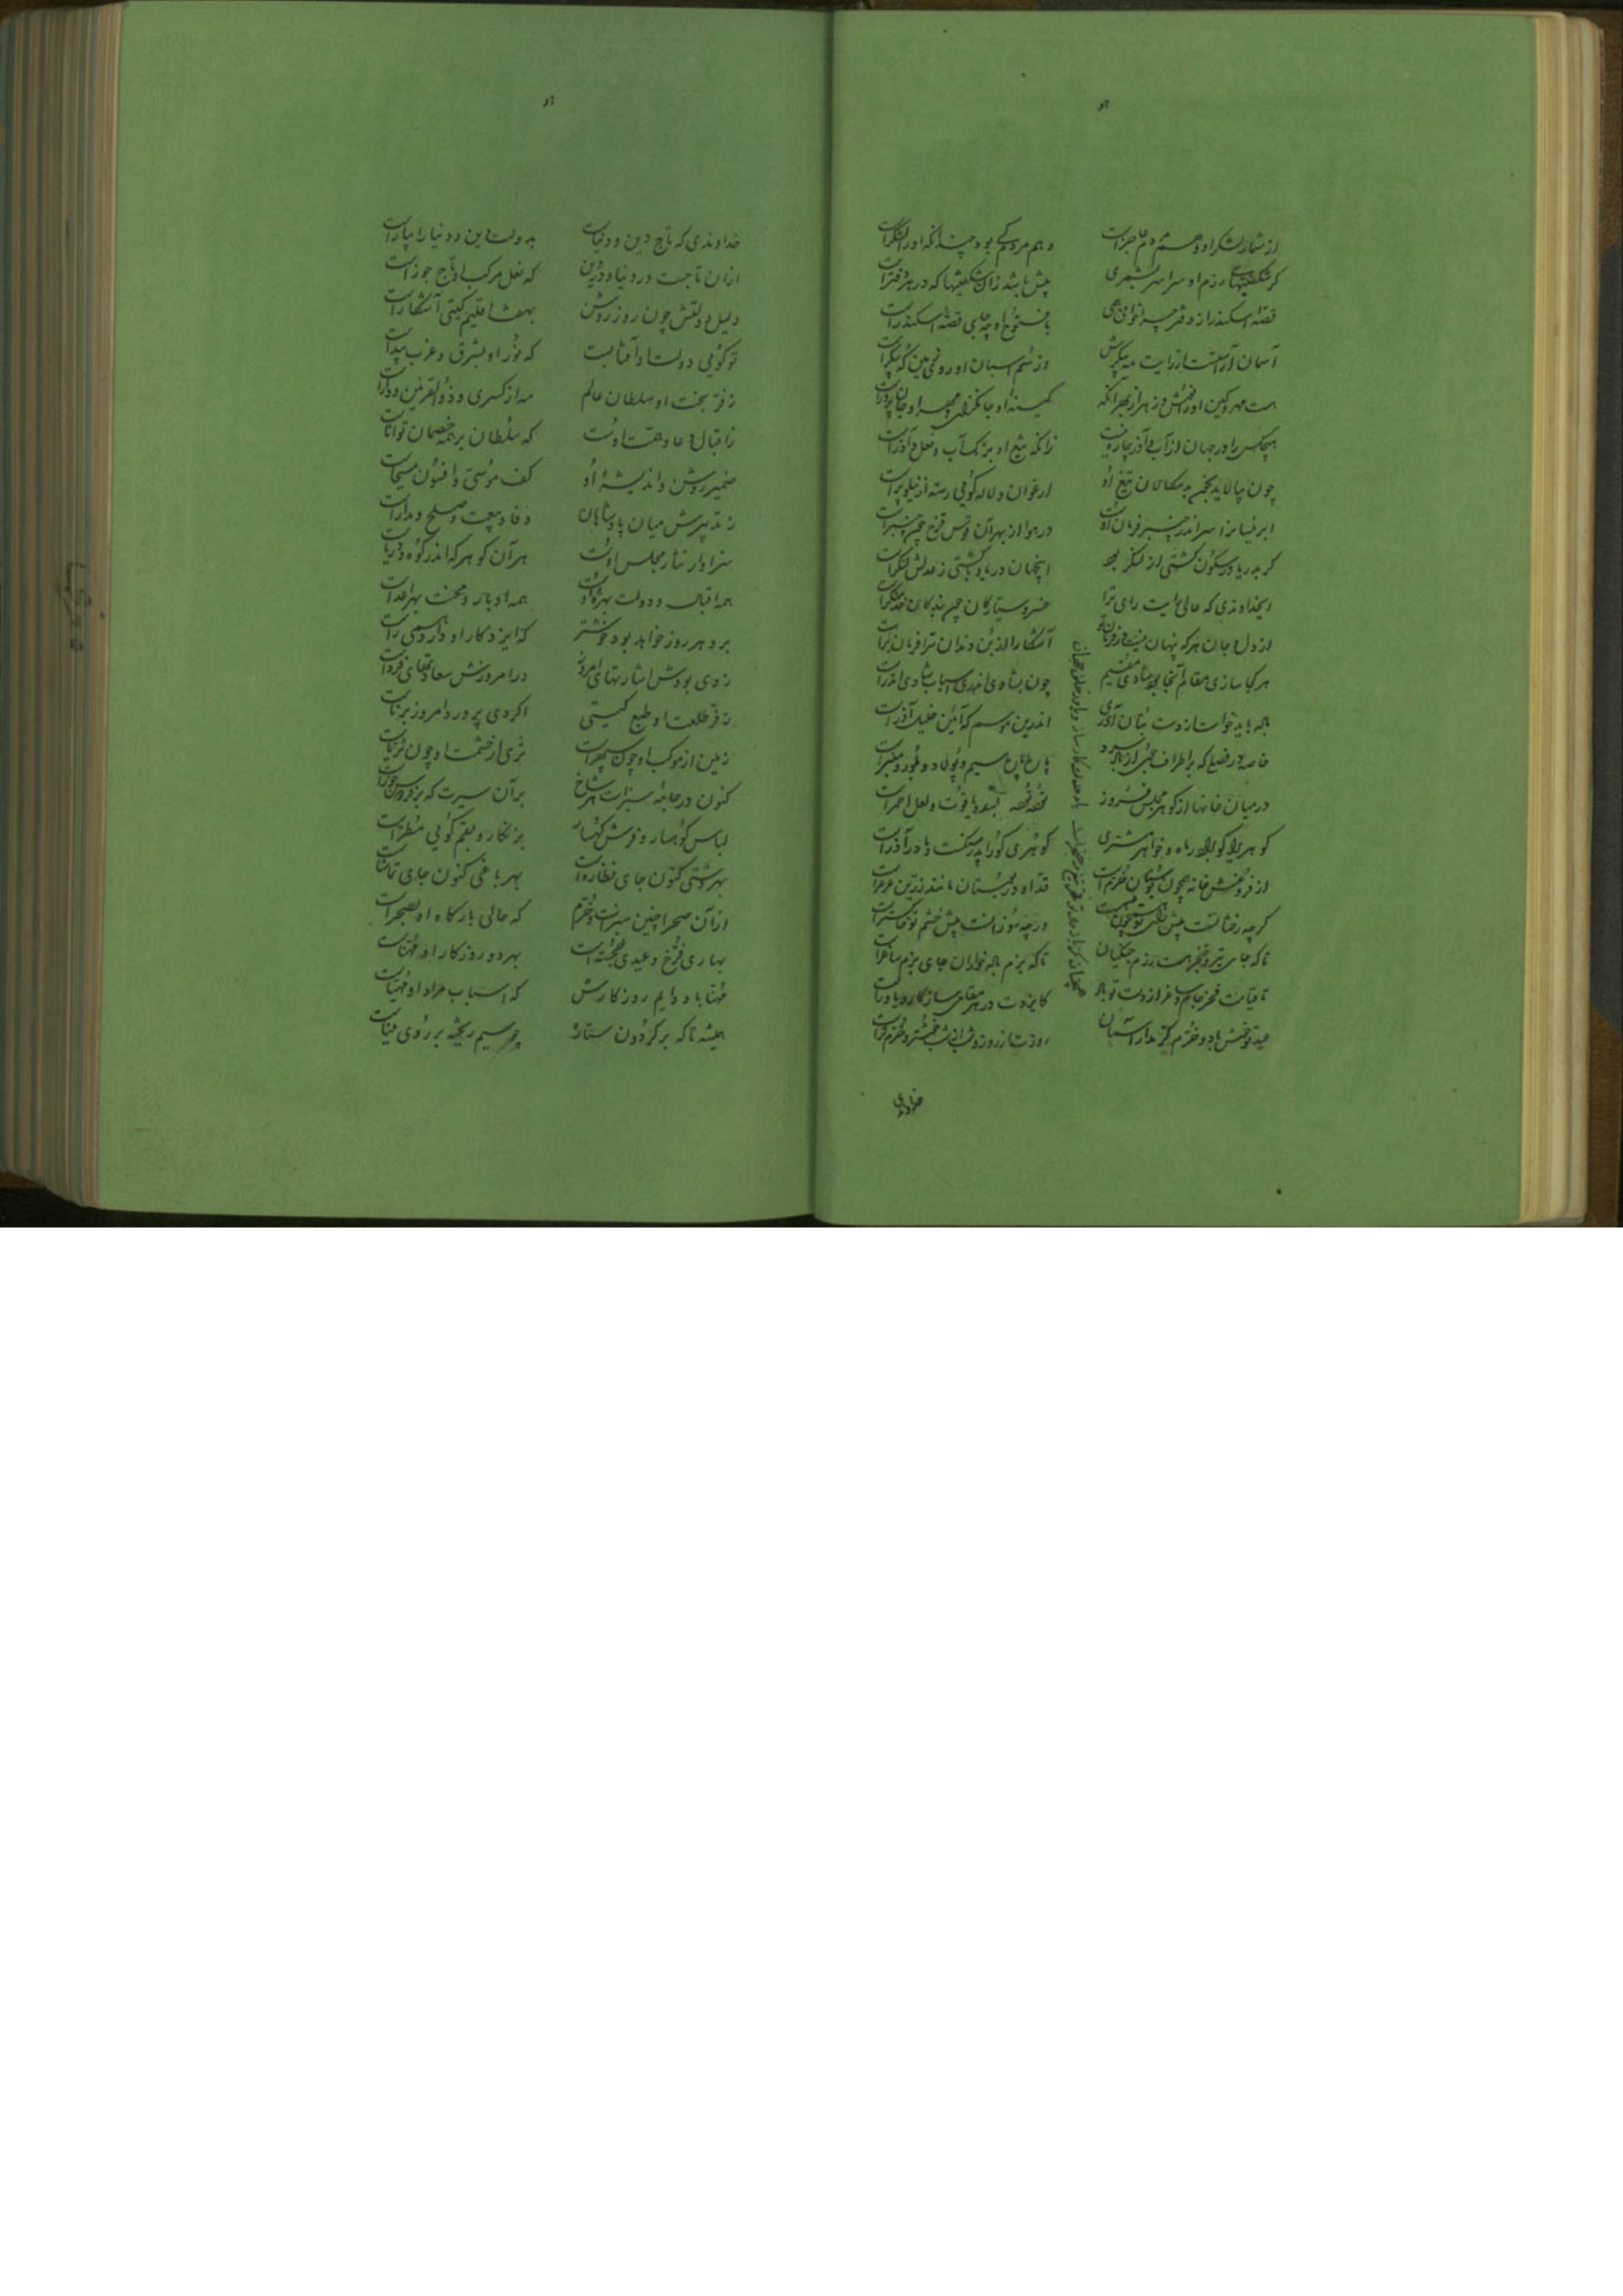 هو
از شمار لشکر او وهم مردم عاجزست وهم مردم کی بود چندانکه او را لشکرست
گر شگفتیهای رزم او سراسر بشمری بیش باشد زان شگفتیها که در هر دفترست
قصهٔ اسکندر از دفتر چرا خوانی همی با فتوح او چه جای قصهٔ اسکندرست
آسمان آراستست از رایت مه پیکرش وز سم اسبان او روی زمین که پیکرست
هست مهر و کین او در هر آنکه کینهٔ او جانگزای و مهر او جان پرورست
هیچکس را در جهان از آب و آذر چاره نیست زانکه تیغ او برنگ آب و فعل آذرست
چون بیالاید بخون بدسگالان تیغ او ارغوان و لاله گویی رسته از نیلوپرست
ابر نیسان را سر اندر چنبر فرمان اوست در هوا از بهر آن قوس قزح چون چنبرست
گر بدریا در سکون کشتی از لنگر بود این جهان دریا و کشتی ز عدلش لنگرست
ای خداوندی که عالی رایت رای ترا خسرو سیارگان چون بندگان خدمتگرست
از دل و جان هر که پنهان نیست در فرمان تو آشکارا از بن دندان ترا فرمان برست
هر کجا سازی مقام آنجا بود شادی مقیم چون بشادی اندری اسباب شادی اندرست
باده باید خواست از دست بتان آزری اندرین موسم که آیین خلیل آذرست
خاصه در فصلی که بر اطراف جوی از باد سرد باغ باغ سیم و پولاد و بلور و مرمرست
در میان خانها از گوهر مجلس فروز تخته تخته بسد و یاقوت و لعل احمرست
گوهری کو لاله را ماه و خواهر مشتری گوهری کو را پدر سنگست و مادر آذرست
از فروغش خانه همچون بوستان خرم است قد او در بوستان مانند زرین عرعرست
گرچه رخشانست پیش تو چون ورچه سوزانست پیش خشم تو خاکسترست
تا که جای تیر و خنجر هست رزم جنگیان تا که بزم باده خواران جای بزم ساغرست
تا قیامت فخر جام و ساغر از دست تو باد کایزدت در هر مقامی سازگار و یاورست
عید تو خوش باد و خرم کز مدار آسمان روزت از روز و شب از شب خوشتر و خرم ترست
خداوندی
هو
خداوندی که تاج دین و دنیاست بدولت دین و دنیا را بیاراست
ازان تاجست در دنیا و در دین که نعل مرکب او تاج جوزاست
دلیل دولتش چون روز روشن بهفت اقلیم گیتی آشکاراست
تو گویی دولت او آفتابیست که نور او بشرق و غرب پیداست
ز فر بخت او سلطان عالم مه از کسری و ذوالقرنین و داراست
ز اقبال و دعا و همت اوست که سلطان بر همه خصمان تواناست
ضمیر روشن و اندیشهٔ او کف موسی و افسون مسیحاست
ز تدبیرش میان پادشاهان وفا و بیعت و صلح و مداراست
سزاوار نثار مجلس اوست هر آن گوهر که اندر کوه و دریاست
همه اقبال و دولت بهرهٔ اوست همه ادبار و محنت بهر اعداست
برو هر روز خواهد بود خوشتر که ایزد کار او دارد همی راست
ز دی بودش اشارتهای امروز در امروزش سعادتهای فرداست
ز فر طلعت او طبع گیتی اگر دی پیر بود امروز برناست
زمین از موکب او چون سپهرست ثری از حشمت او چون ثریاست
کنون در جامهٔ سبزست هر شاخ بر آن سیرت که بر فردوس حوراست
لباس کوهسار و فرش کهسار بزنگار و بقم گویی مطراست
بهر دشتی کنون جای نظاره است بهر باغی کنون جای تماشاست
از آن صحرا چنین سبزست و خرم که عالی بارگاه او بصحراست
بهاری فرخ و عیدی خجسته است بهر دو روزگار او مهناست
مهنا باد دایم روزگارش که اسباب مراد او مهیاست
همیشه تا که بر گردون ستاره چو سیم ریخته بر روی میناست